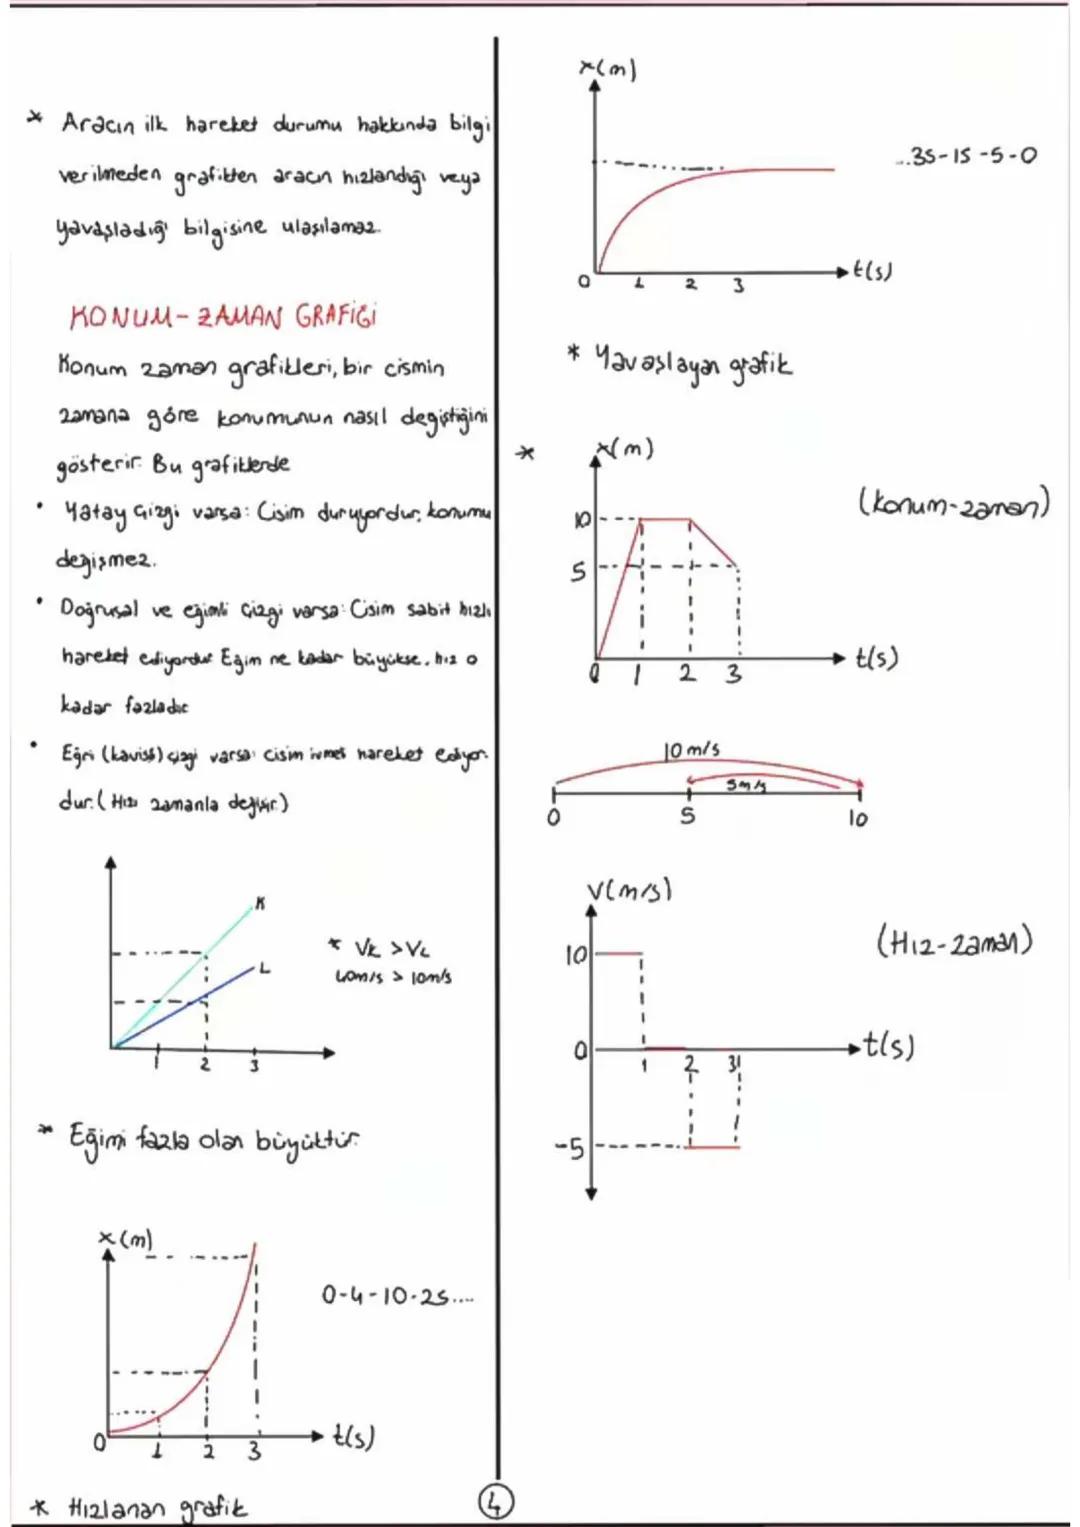 * Aracın ilk hareket durumu hakkında bilgi
verilmeden grafikten aracın hızlandığı veya
yavaşladığı bilgisine ulaşılamaz.
KONUM-ZAMAN GRAFİĞİ
Konum zaman grafikleri, bir cismin
zamana göre konumunun nasıl değiştiğini
gösterir. Bu grafiklerde
• Yatay Çizgi varsa: Cisim duruyordur, konumu
değişmez.
• Doğrusal ve eğimli Çizgi varsa: Cisim sabit hızlı
hareket ediyordur Eğim ne kadar büyükse, hız o
kadar fazladır
• Eğri (kavisli) çizgi varsa: cisim ivmeli hareket ediyor-
dur. (Hızı zamanla değişir.)
K
L
1 2 3
* VK > VL
40m/s > 10m/s
* Eğimi fazla olan büyüktür.
x(m)
0-4-10-25....
0 1 2 3 t(s)
* Hızlanan grafik
x(m)
...35-15-5-0
0 1 2 3 t(s)
* Yavaşlayan grafik
*
x(m)
(konum-zaman)
10
5
0 1 2 3 t(s)
10 m/s
5m/s
0 5 10
V(m/s)
(Hız-zaman)
10
0 1 2 3 t(s)
-5
4